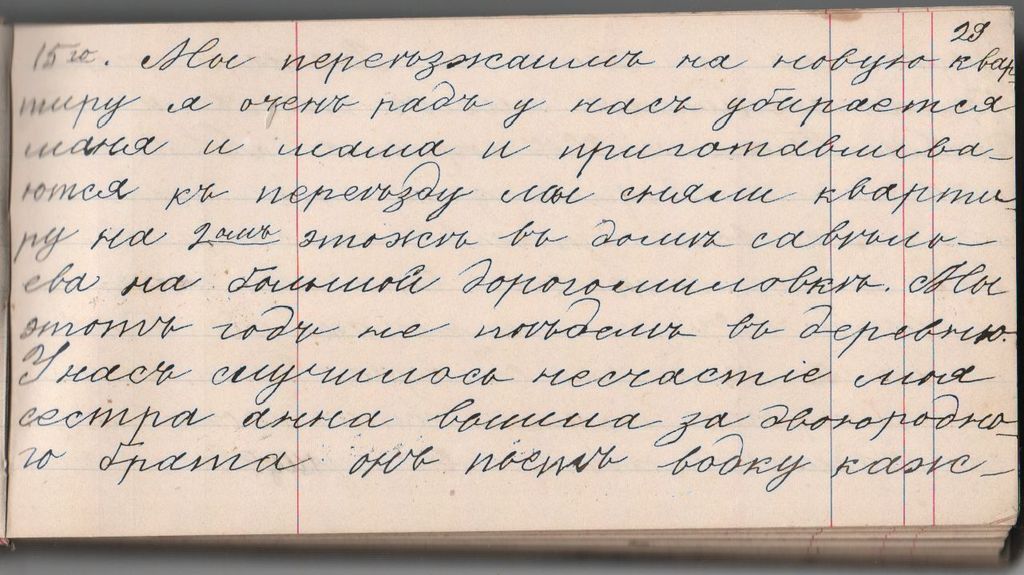 29
15го. Мы переѣзжаимъ на новую квар
тиру я оченъ радъ у насъ убирается
маня и мама и приготавлива-
ются къ переѣзду мы сняли кварти-
ру на 2омъ этожѣ въ домѣ савѣль-
ева на большой дорогомиловкѣ. Мы
этотъ годъ не поѣдемъ въ деревню.
У насъ случилось несчастіе моя
сестра анна вышла за двоюродно-
го брата онъ пьетъ водку каж-